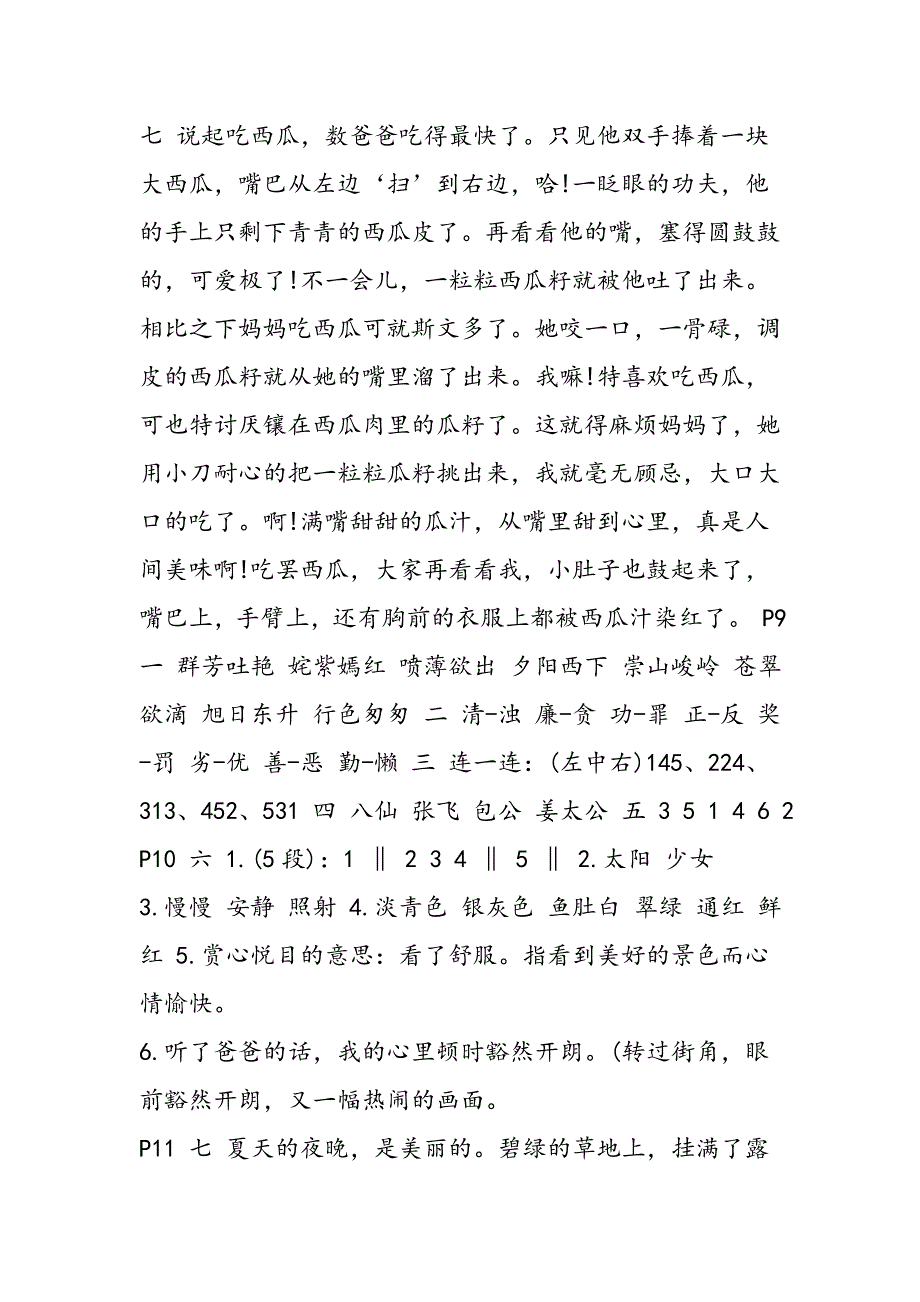 七 说起吃西瓜，数爸爸吃得最快了。只见他双手捧着一块
大西瓜，嘴巴从左边‘扫’到右边，哈!一眨眼的功夫，他
的手上只剩下青青的西瓜皮了。再看看他的嘴，塞得圆鼓鼓
的，可爱极了!不一会儿，一粒粒西瓜籽就被他吐了出来。
相比之下妈妈吃西瓜可就斯文多了。她咬一口，一骨碌，调
皮的西瓜籽就从她的嘴里溜了出来。我嘛!特喜欢吃西瓜，
可也特讨厌镶在西瓜肉里的瓜籽了。这就得麻烦妈妈了，她
用小刀耐心的把一粒粒瓜籽挑出来，我就毫无顾忌，大口大
口的吃了。啊!满嘴甜甜的瓜汁，从嘴里甜到心里，真是人
间美味啊!吃罢西瓜，大家再看看我，小肚子也鼓起来了，
嘴巴上，手臂上，还有胸前的衣服上都被西瓜汁染红了。 P9
一 群芳吐艳 姹紫嫣红 喷薄欲出 夕阳西下 崇山峻岭 苍翠
欲滴 旭日东升 行色匆匆 二 清-浊 廉-贪 功-罪 正-反 奖
-罚 劣-优 善-恶 勤-懒 三 连一连：(左中右)145、224、
313、452、531 四 八仙 张飞 包公 姜太公 五 3 5 1 4 6 2
P10 六 1.(5段)：1 ‖ 2 3 4 ‖ 5 ‖ 2.太阳 少女
3.慢慢 安静 照射 4.淡青色 银灰色 鱼肚白 翠绿 通红 鲜
红 5.赏心悦目的意思：看了舒服。指看到美好的景色而心
情愉快。
6.听了爸爸的话，我的心里顿时豁然开朗。(转过街角，眼
前豁然开朗，又一幅热闹的画面。
P11 七 夏天的夜晚，是美丽的。碧绿的草地上，挂满了露